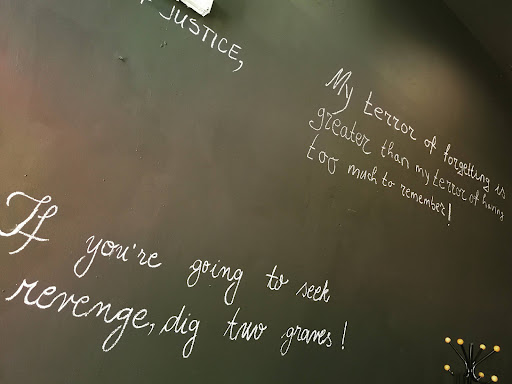 JUSTICE,
My terror of forgetting is
greater than my terror of having
too much to remember!
If you're going to seek
revenge, dig two graves!